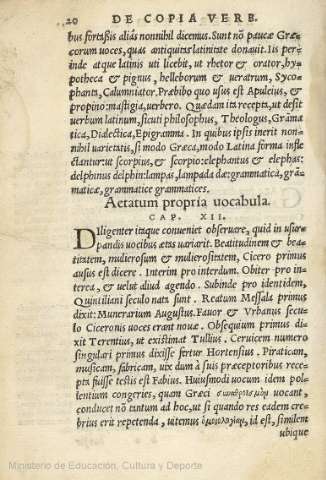 20 DE COPIA VERB.
bus fortaßis aliàs nonnihil dicemus. Sunt nõ paucæ Græ-
corum uoces, quas antiquitas latinitate donauit. Iis per-
inde atque latinis uti licebit, ut rhetor & orator, hy-
potheca & pignus, helleborum & ueratrum, Syco-
phanta, Calumniator. Præbibo quo usus est Apuleius, &
propino: mastigia, uerbero. Quædam ita recepta, ut desit
uerbum latinum, sicuti philosophus, Theologus, Gråma
tica, Dialectica, Epigramma. In quibus ipsis inerit non-
nihil uarietatis, si modo Græca, modo Latina forma infle
ctantur: ut scorpius, & scorpio: elephantus & elephas:
delphinus delphin: lampas, lampada dæ: grammatica, grã-
maticæ, grammatice grammatices.
Aetatum propria uocabula.
CAP. XII.
Diligenter itaque conueniet obseruare, quid in usur-
pandis uocibus ætas uariarit. Beatitudinem & bea-
titatem, mulierosum & mulierositatem, Cicero primus
ausus est dicere. Interim pro interdum. Obiter pro in-
terea, & uelut aliud agendo. Subinde pro identidem,
Quintiliani seculo nata sunt. Reatum Messala primus
dixit: Munerarium Augustus. Fauor & Vrbanus secu-
lo Ciceronis uoces erant nouæ. Obsequium primus di-
xit Terentius, ut existimat Tullius. Ceruicem numero
singulari primus dixisse fertur Hortensius. Piraticam,
musicam, fabricam, uix dum à suis præceptoribus rece-
pta fuisse testis est Fabius. Huiusmodi uocum idem pol-
lentium congeries, quam Græci συναθροισμὸν uocant,
conducet nõ tantum ad hoc, ut si quando res eadem cre-
brius erit repetenda, uitemus ὁμοιολογίαν, id est, similem
ubique
Ministerio de Educación, Cultura y Deporte